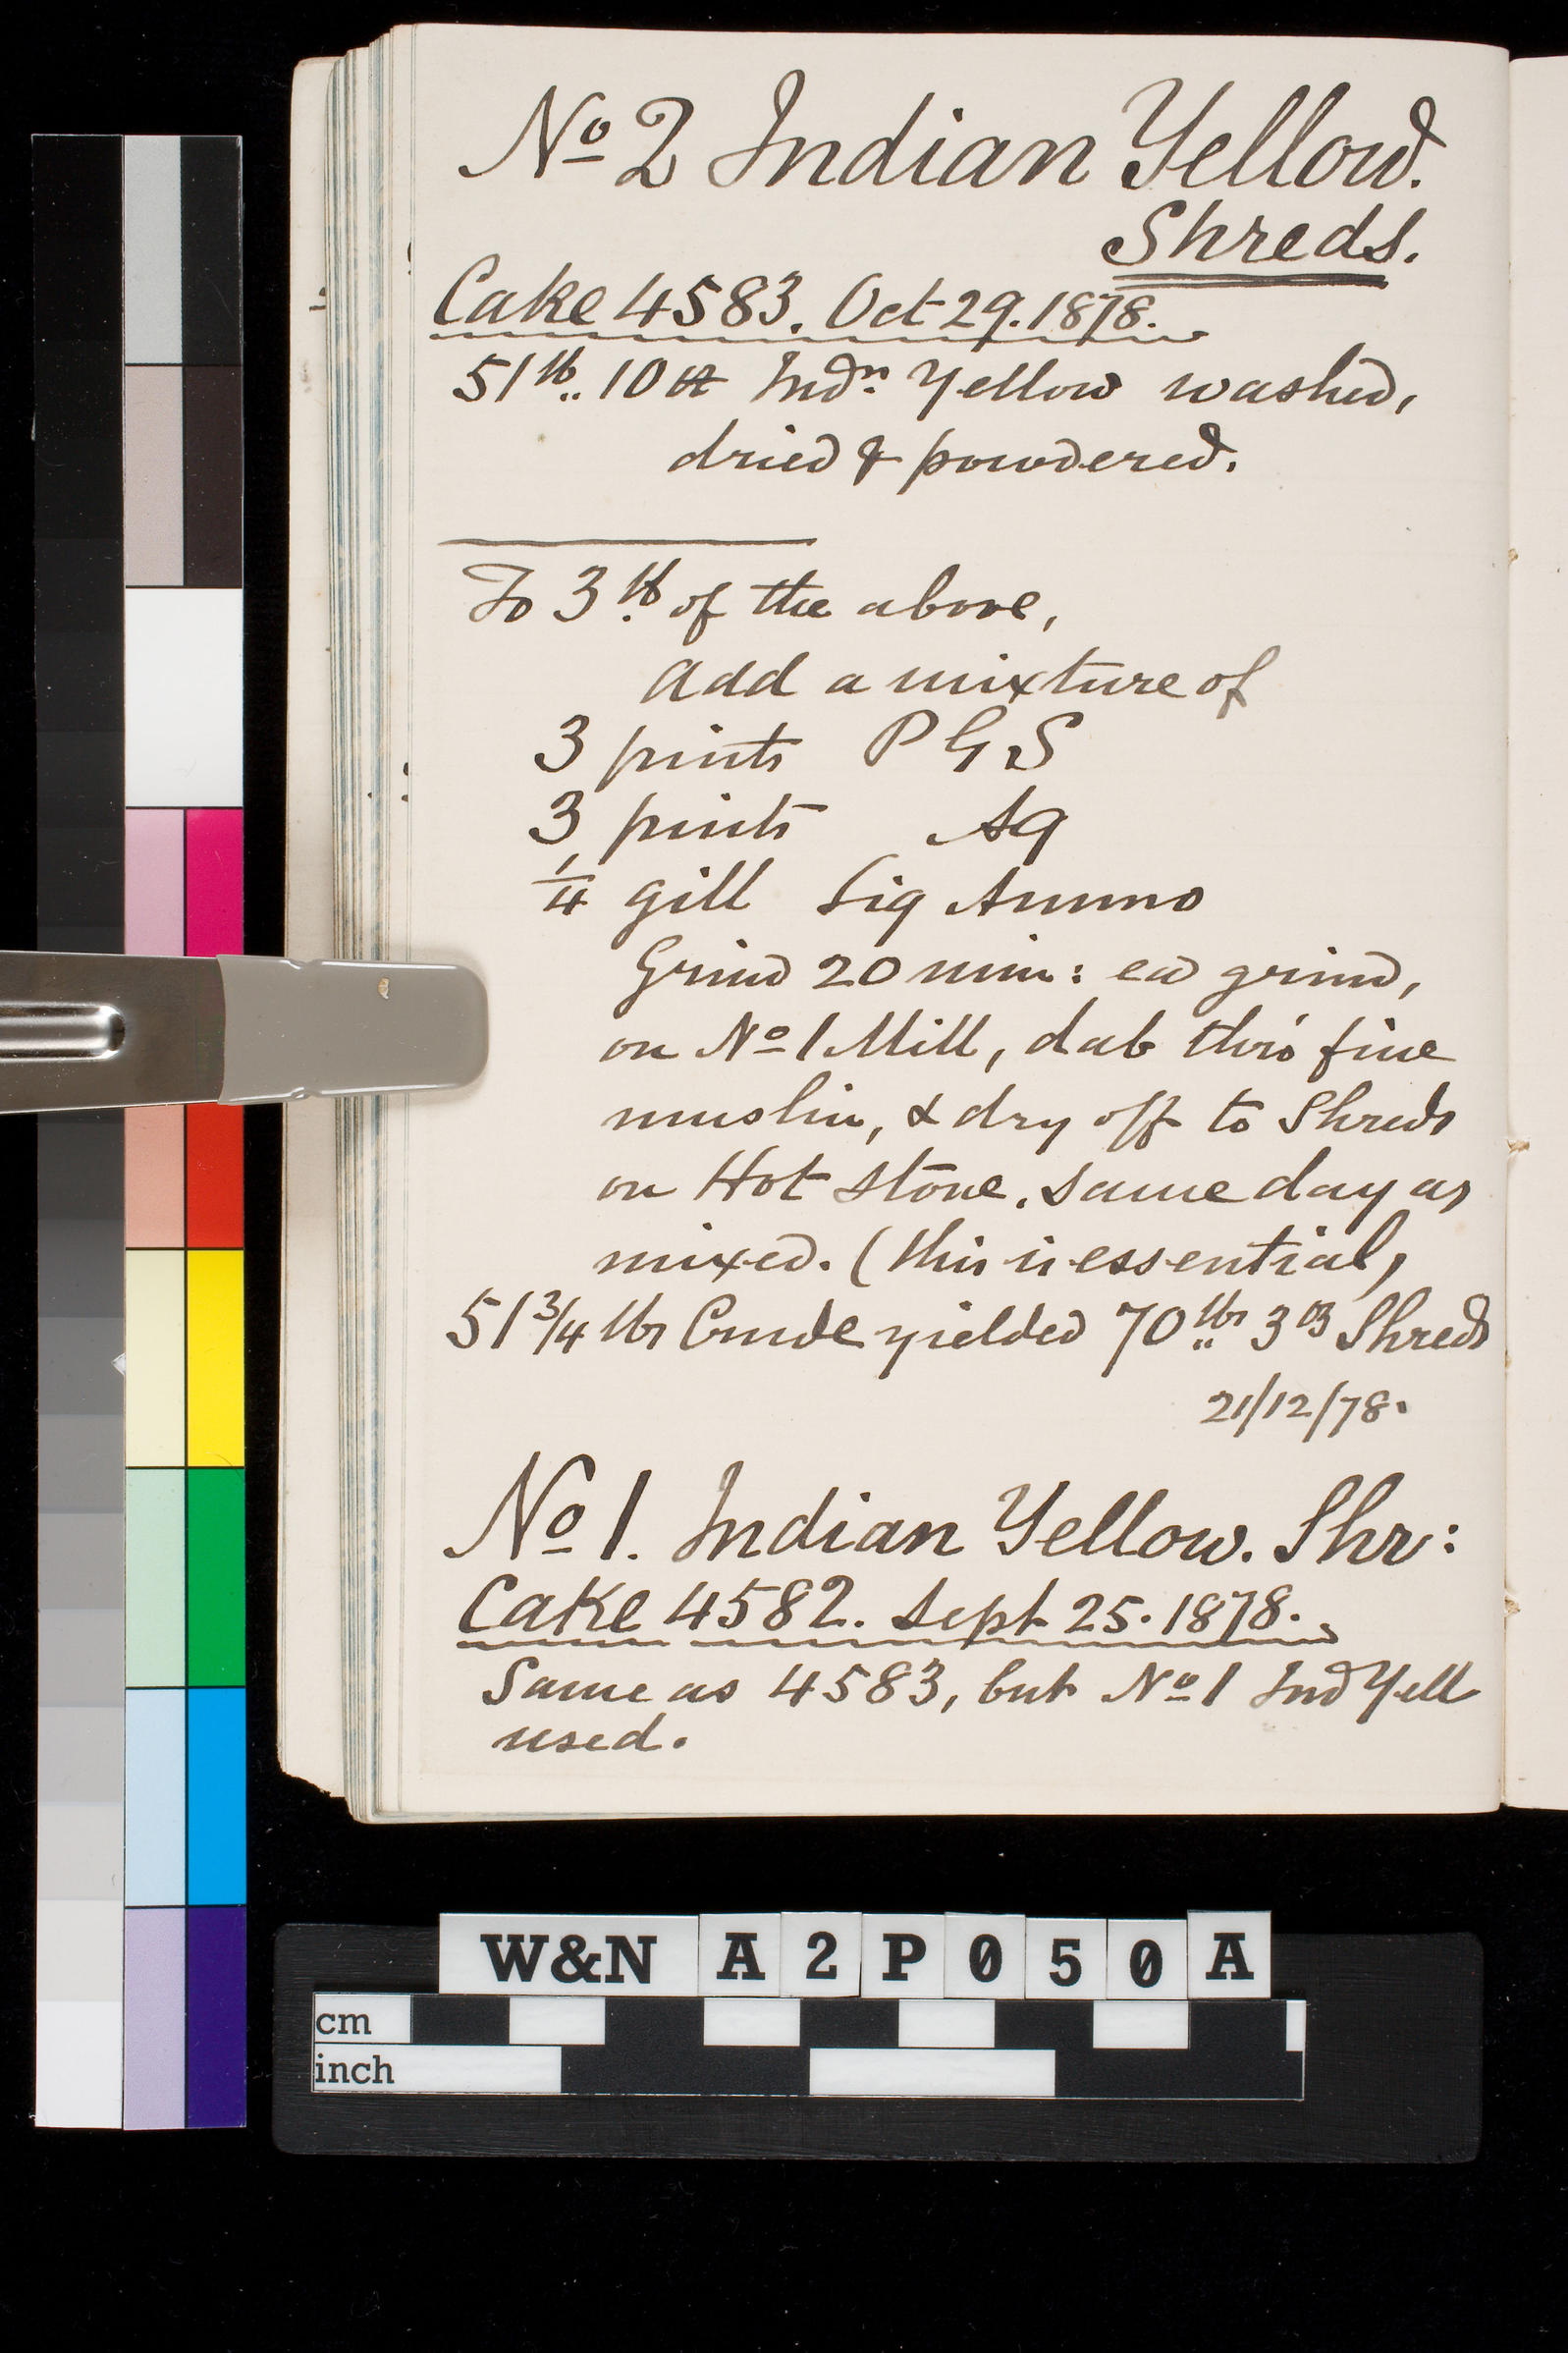 No 2 Indian Yellow.
Shreds.
Cake 4583. Oct 29. 1878.
51 lb.. 10 oz Indn. Yellow washed,
dried & powdered.
To 3 lb. of the above,
Add a mixture of
3 pints P G S
3 pints Aq
1/4 gill Liq Ammo
Grind 20 min: ea grind,
on No 1 Mill, dab thro' fine
muslin, & dry off to Shreds
on Hot Stone. Same day as
mixed. (this is essential)
51 3/4 lbs Crude yielded 70 lbs.. 3 oz Shreds
21/12/78.
No 1. Indian Yellow. Shr:
Cake 4582. Sept 25. 1878.
Same as 4583, but No 1 Ind Yell
used.
W&N A2P050A
cm
inch